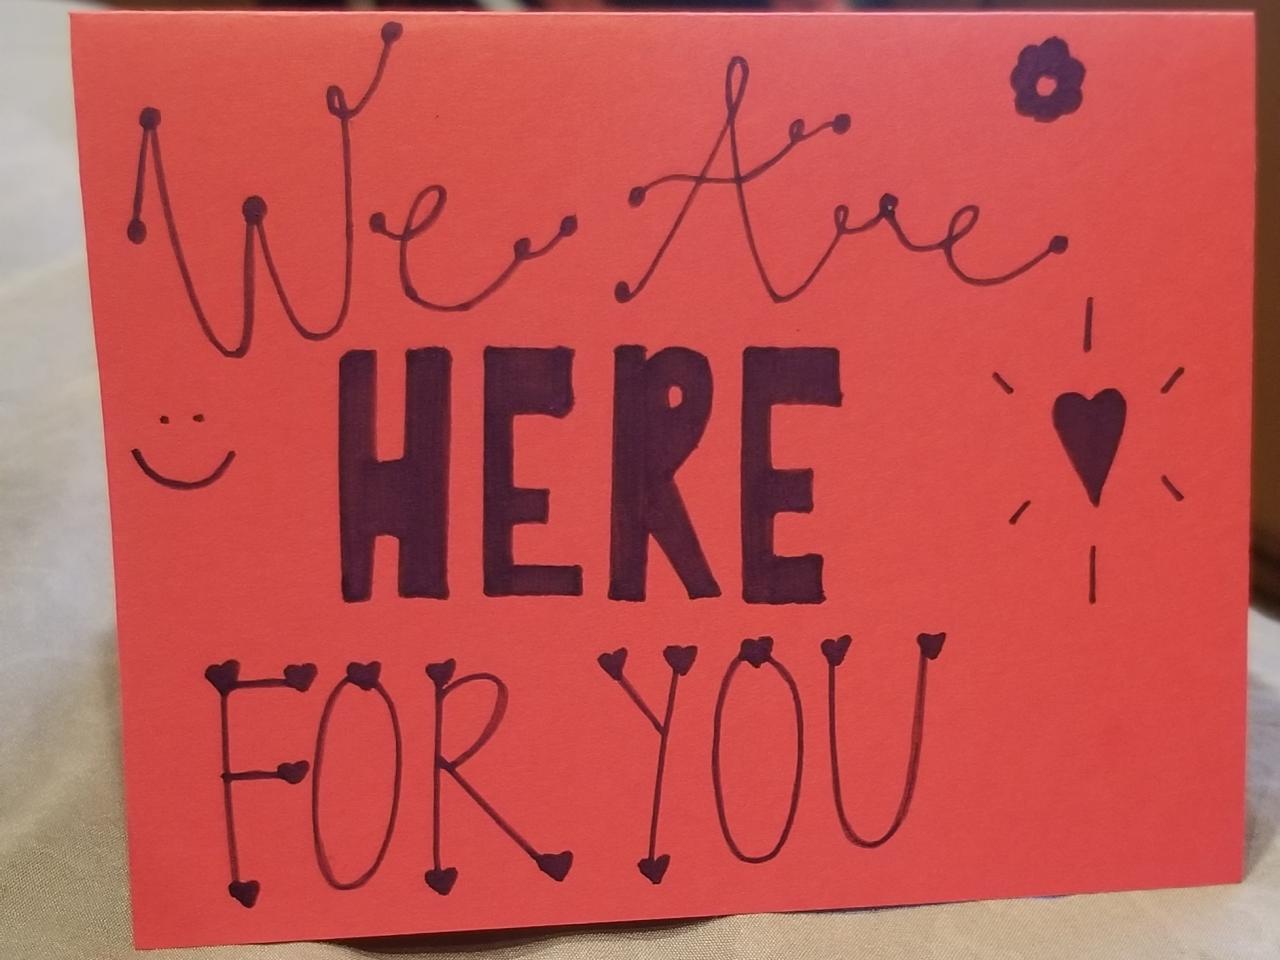 We Are
HERE
FOR YOU